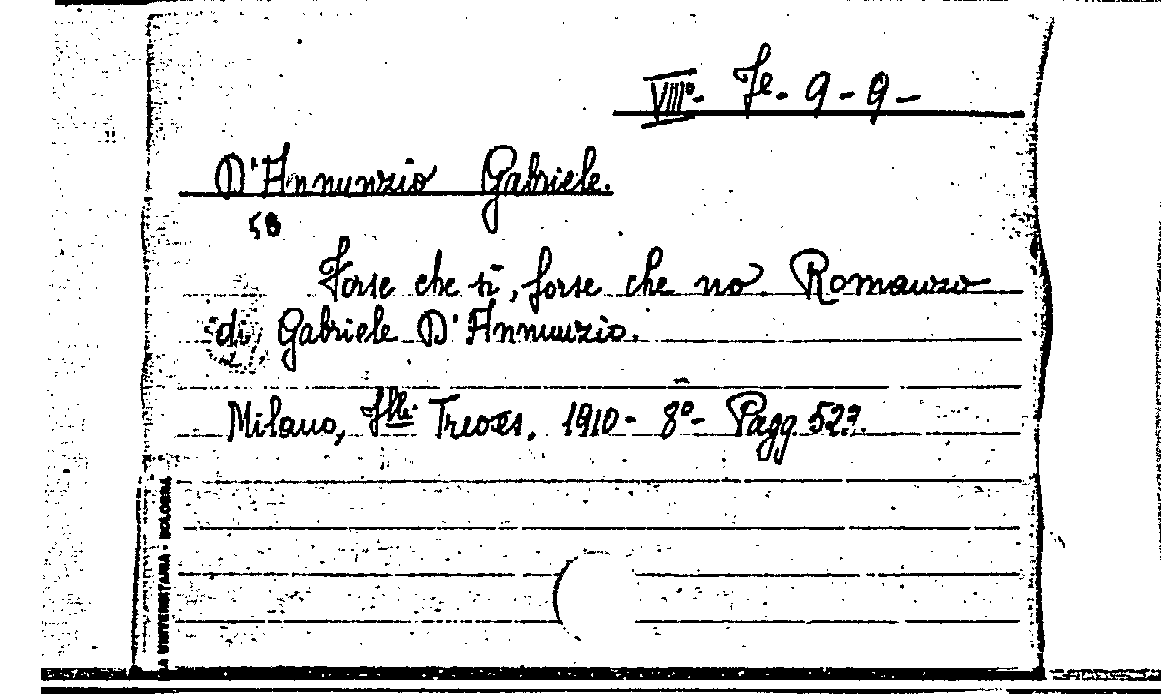 VIIIº- Fe - 9 - 9 -
D'Annunzio Gabriele.
58
Forse che sì, forse che no. Romanzo
di Gabriele D'Annunzio.
Milano, Flli Treves. 1910 - 8º - Pagg. 523.
UNIVERSITARIA - BOLOGNA